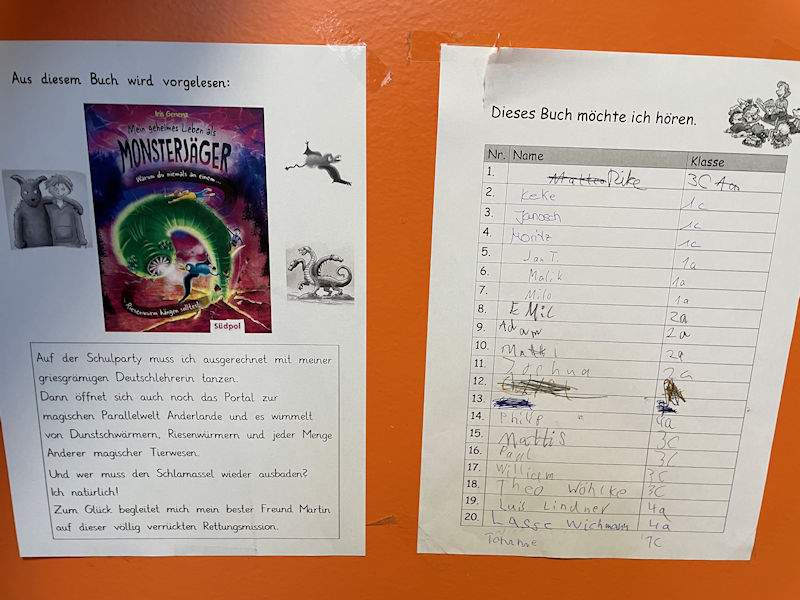 Aus diesem Buch wird vorgelesen:
Iris Genenz
Mein geheimes Leben als
MONSTERJÄGER
Warum du niemals an einem...
...Riesenwurm hängen solltest
Südpol
Auf der Schulparty muss ich ausgerechnet mit meiner
griesgrämigen Deutschlehrerin tanzen.
Dann öffnet sich auch noch das Portal zur
magischen Parallelwelt Anderlande und es wimmelt
von Dunstschwärmern, Riesenwürmern und jeder Menge
Anderer magischer Tierwesen.
Und wer muss den Schlamassel wieder ausbaden?
Ich natürlich!
Zum Glück begleitet mich mein bester Freund Martin
auf dieser völlig verrückten Rettungsmission.
Dieses Buch möchte ich hören.
Nr. Name Klasse
1. Rike 3C
2. Keke 1c
3. Janosch 1c
4. Moritz 1c
5. Jan T. 1a
6. Malik 1a
7. Milo 1a
8. EMil 2a
9. Adam 2a
10. 2a
11. Joshua 2a
12.
13.
14. Philip 4a
15. Mattis 3C
16. Paul 3C
17. William 3C
18. Theo Wöhlke 3C
19. Luis Lindner 4a
20. Lasse Wichmann 4a
1C